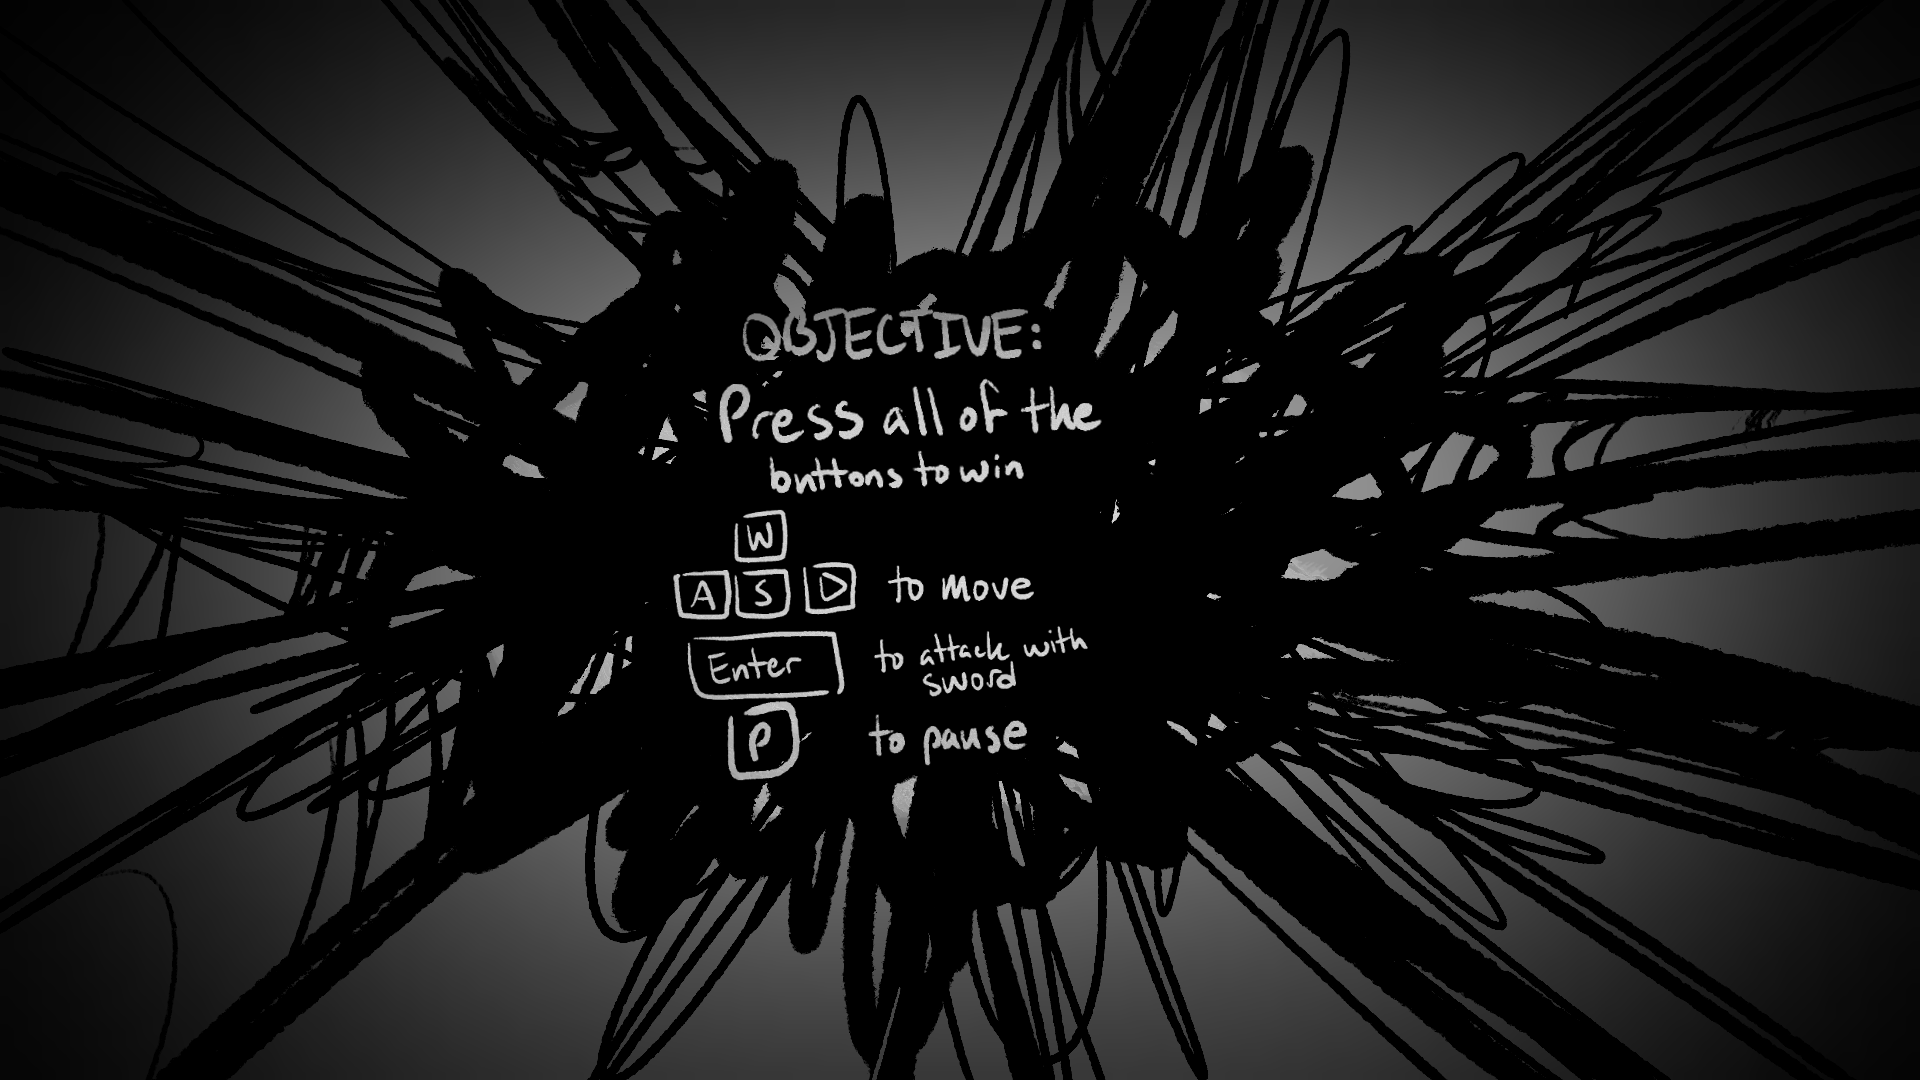 OBJECTIVE:
Press all of the
buttons to win
W
A S D to move
Enter to attack with
sword
P to pause